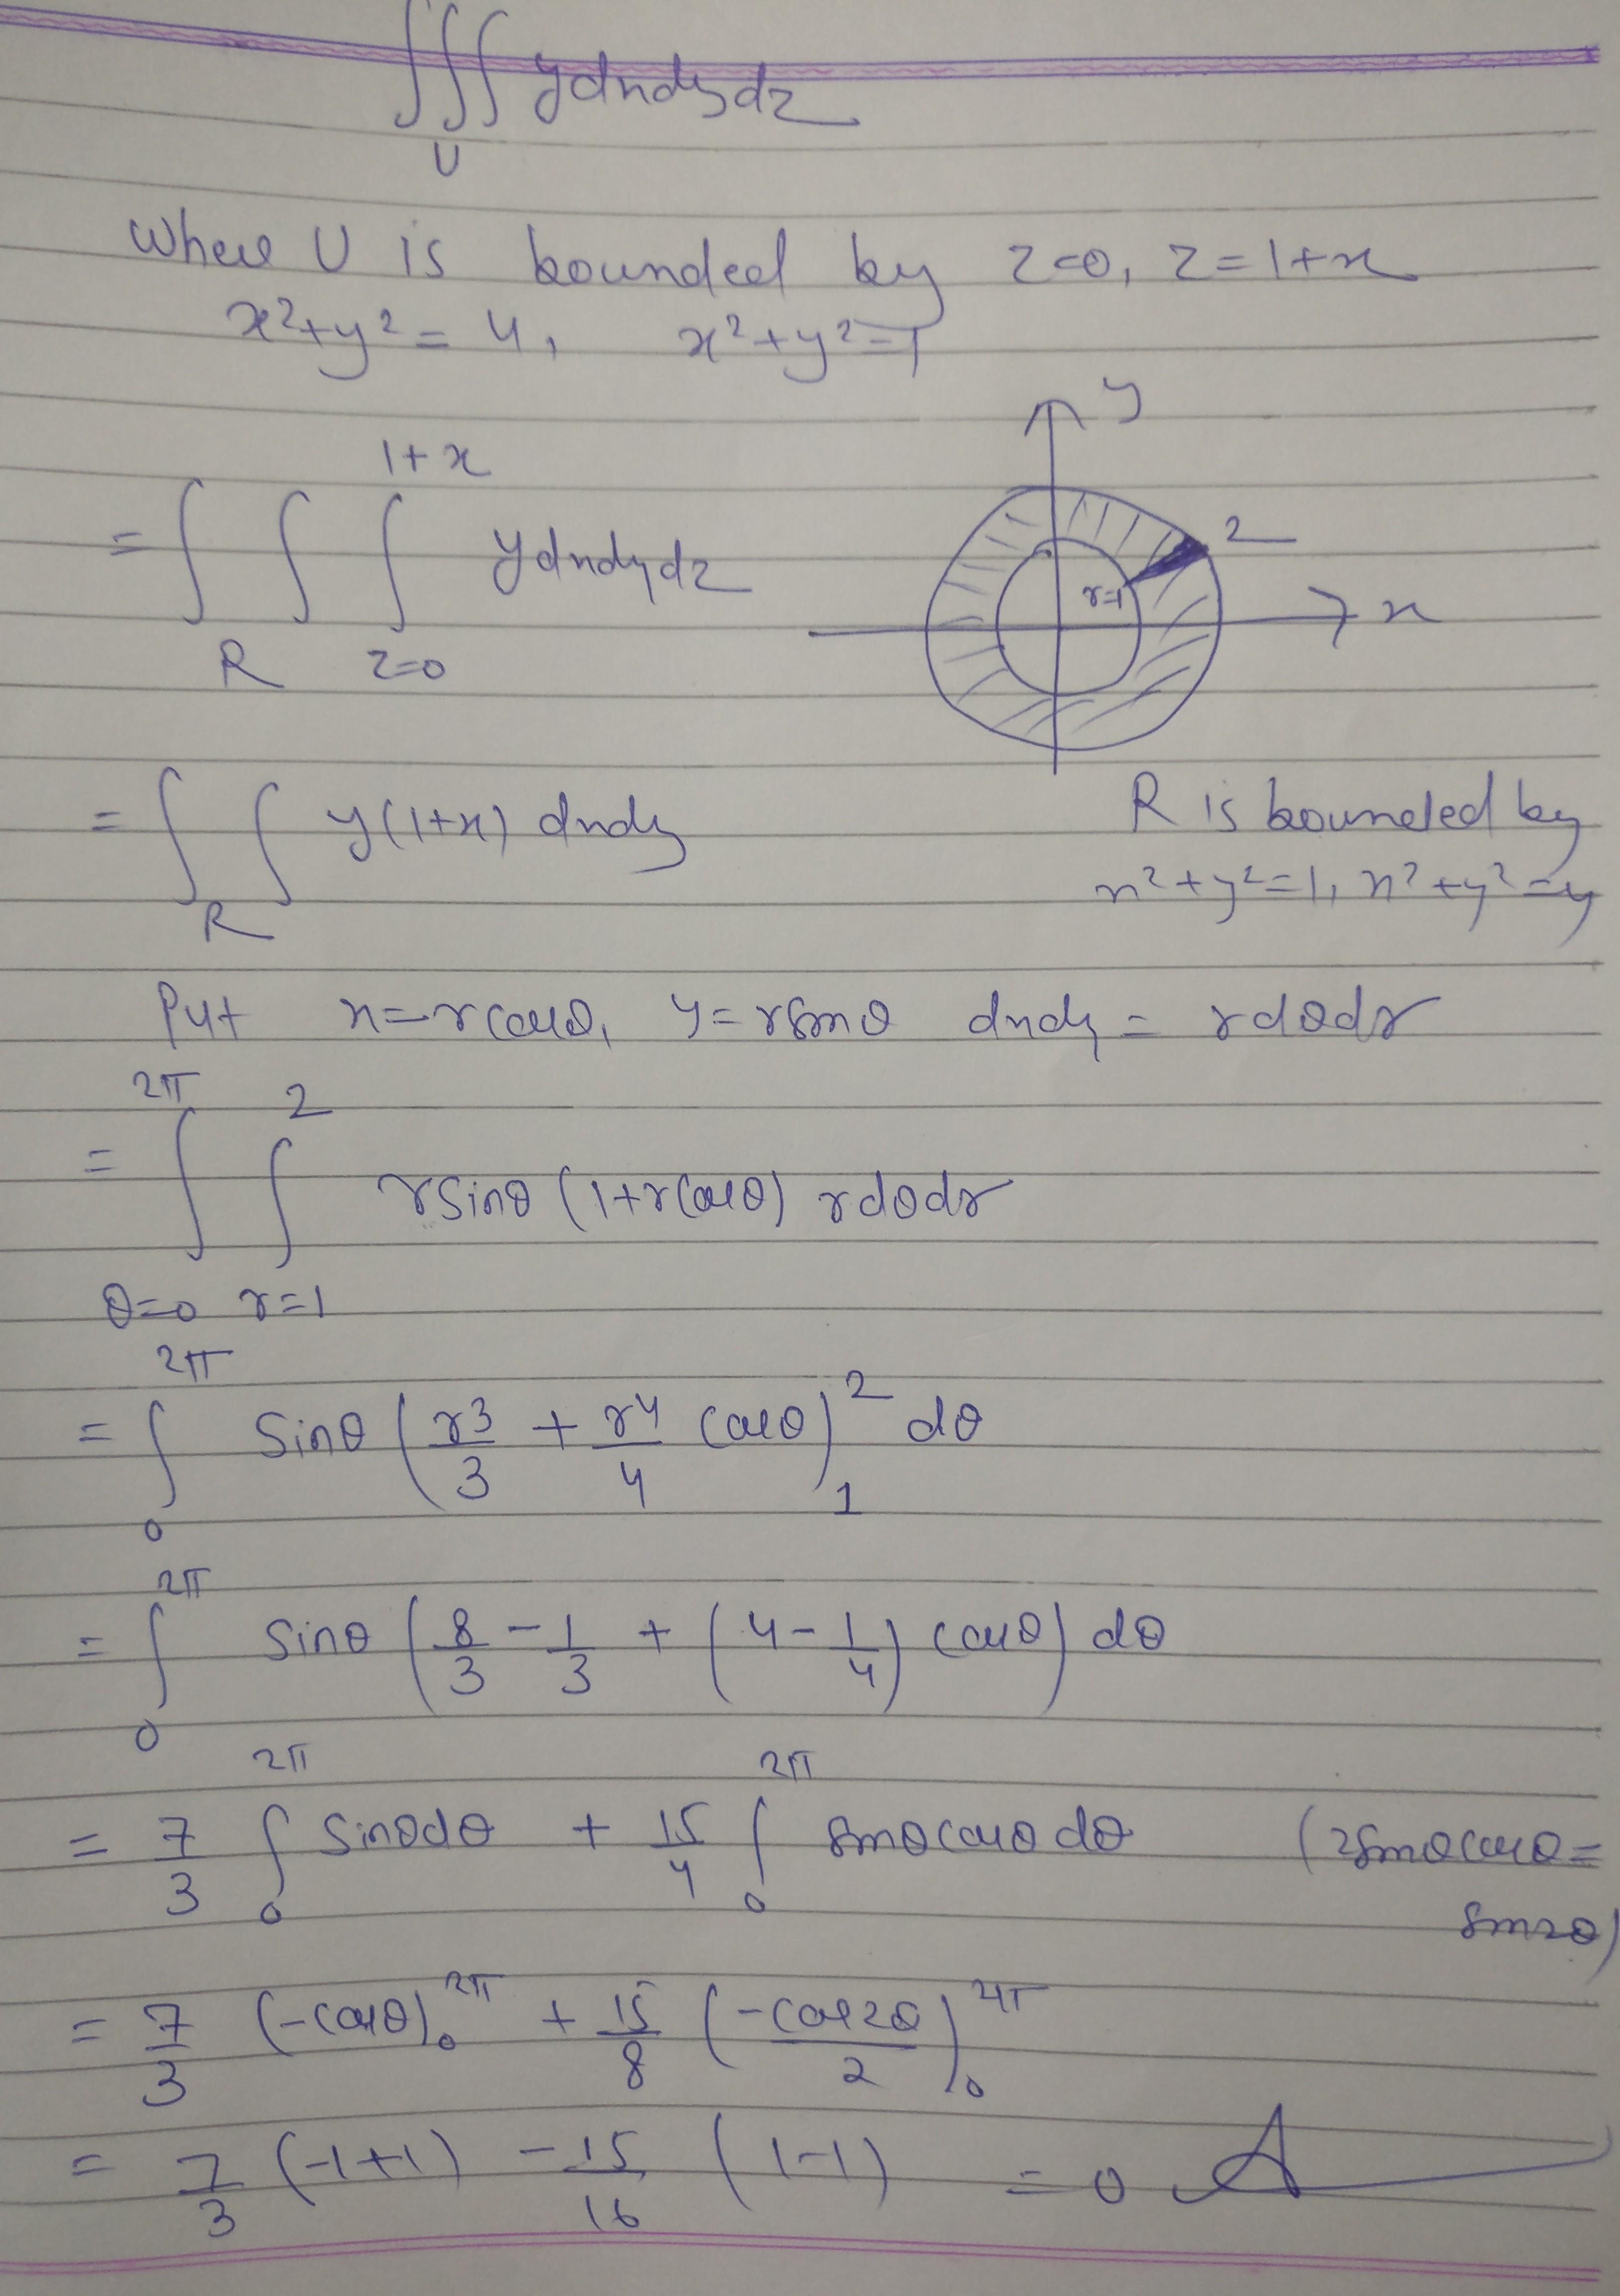 ∫∫∫ y dx dy dz
U
Where U is bounded by z=0, z=1+x
x²+y²=4, x²+y²=1
y
1+x
= ∫ ∫ ∫ y dx dy dz
R z=0
2
r=1
x
= ∫ ∫ y(1+x) dx dy
R
R is bounded by
x²+y²=1, x²+y²=4
Put x=r cosθ, y=r sinθ dx dy = r dθ dr
2π 2
= ∫ ∫ r sinθ (1+r cosθ) r dθ dr
θ=0 r=1
2π
= ∫ sinθ (r3/3 + r4/4 cosθ)²₁ dθ
0
2π
= ∫ sinθ (8/3 - 1/3 + (4 - 1/4) cosθ) dθ
0
2π 2π
= 7/3 ∫ sinθ dθ + 15/4 ∫ sinθ cosθ dθ (2 sinθ cosθ =
0 0
sin2θ)
= 7/3 (-cosθ)₀^2π + 15/8 (-cos2θ/2)₀^2π
= 7/3 (-1+1) - 15/16 (1-1) = 0 A